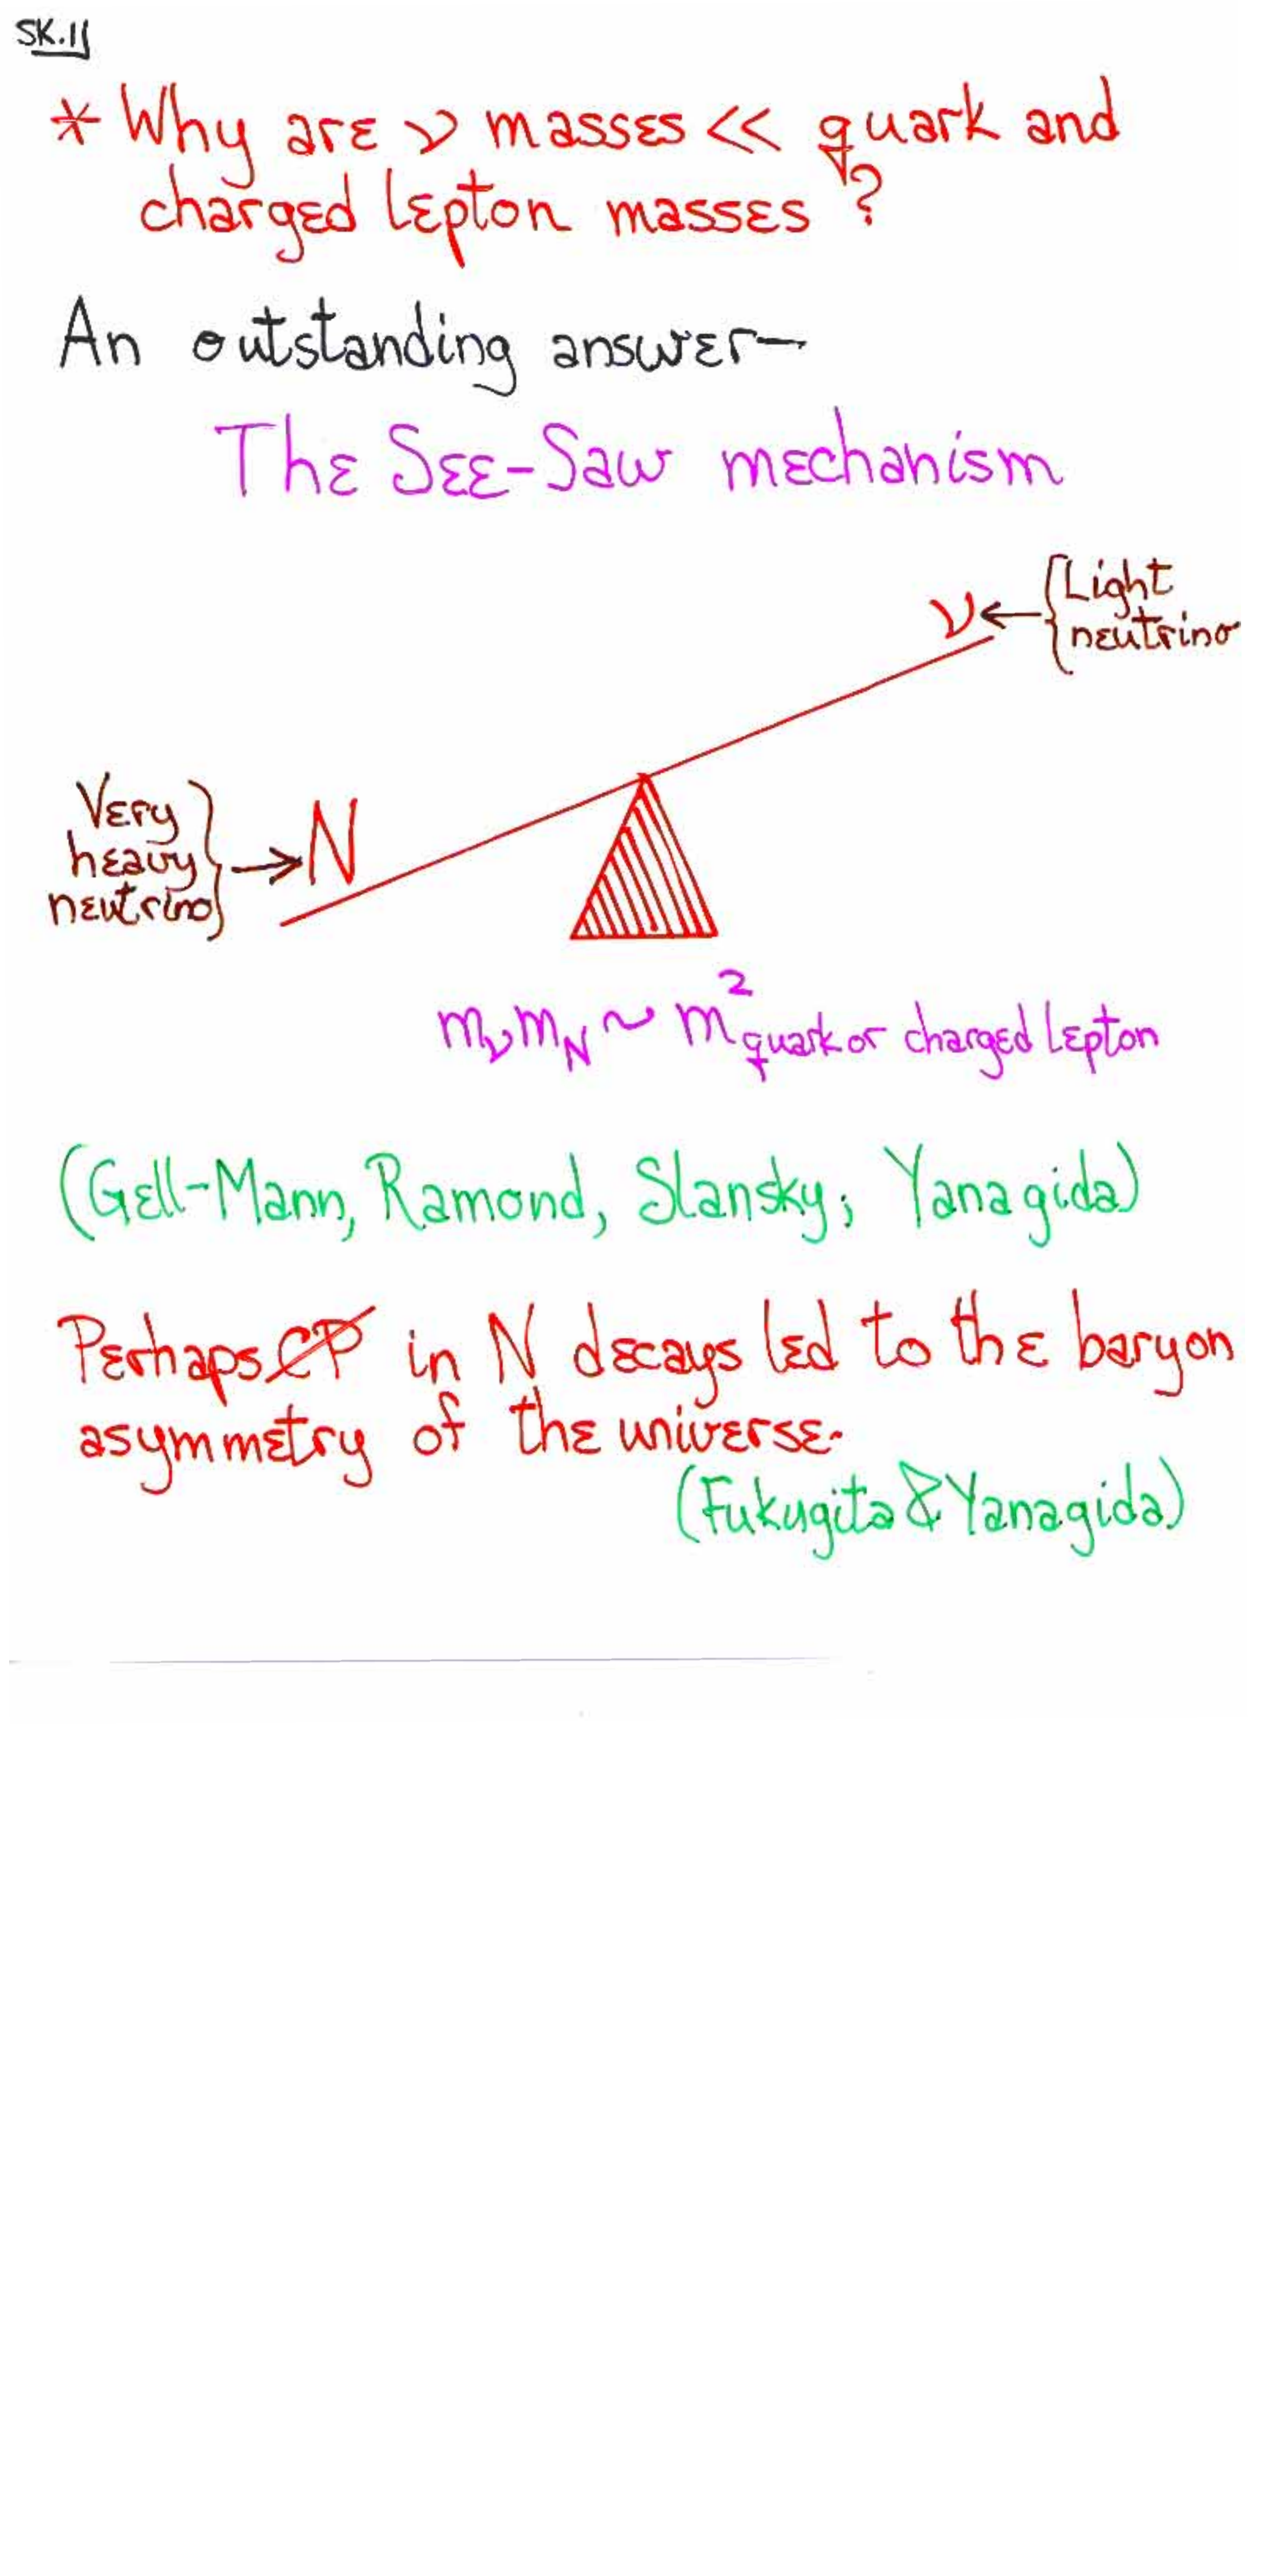 SK.11
* Why are ν masses << quark and
charged lepton masses ?
An outstanding answer—
The See-Saw mechanism
ν ← { Light
neutrino
Very
heavy
neutrino } → N
m_ν m_N ~ m²_quark or charged lepton
(Gell-Mann, Ramond, Slansky; Yanagida)
Perhaps C̸P̸ in N decays led to the baryon
asymmetry of the universe.
(Fukugita & Yanagida)